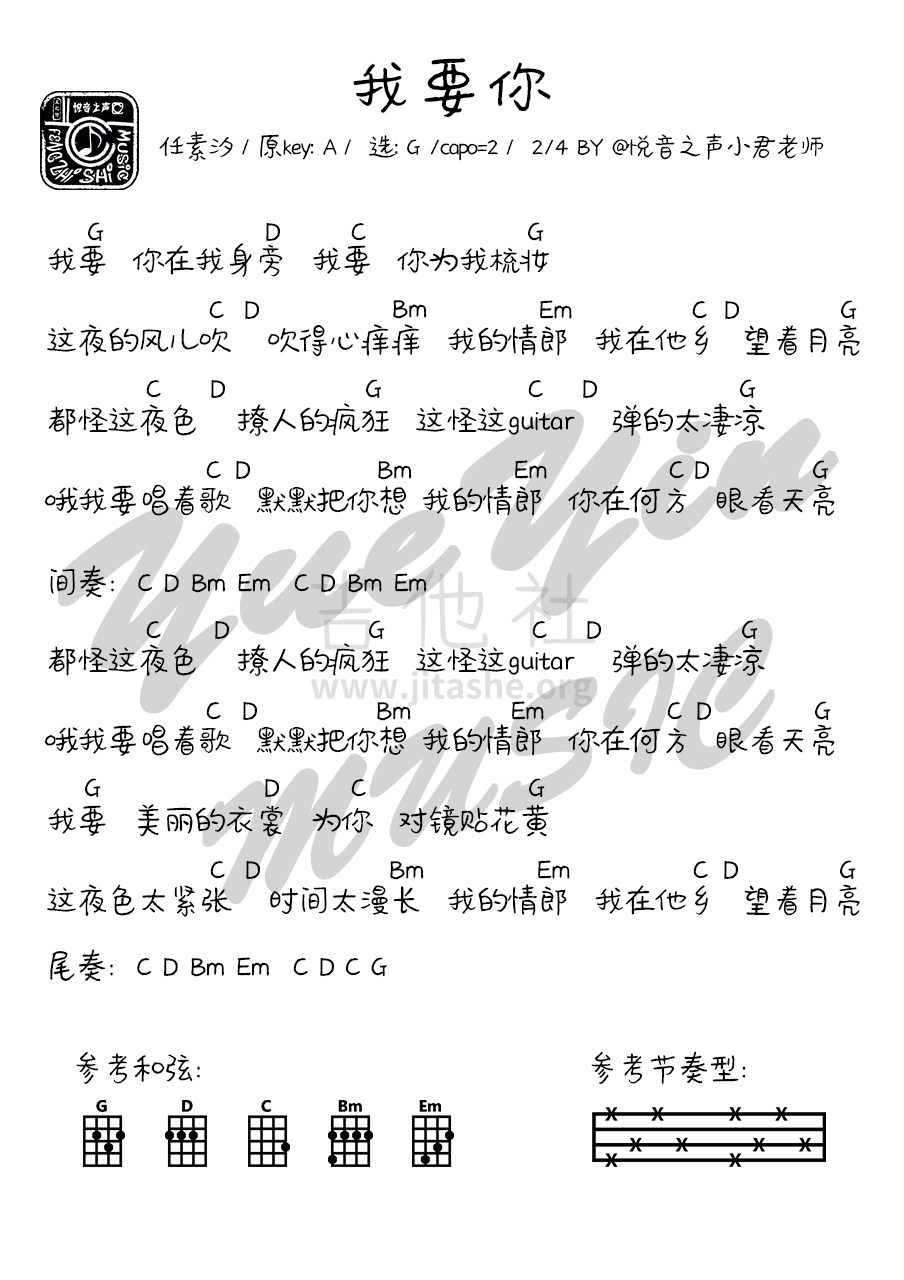 我要你
悦音之声
MUSIC
任素汐 / 原key: A / 选: G /capo=2 / 2/4 BY @悦音之声小君老师
G D C G
我要 你在我身旁 我要 你为我梳妆
C D Bm Em C D G
这夜的风儿吹 吹得心痒痒 我的情郎 我在他乡 望着月亮
C D G C D G
都怪这夜色 撩人的疯狂 这怪这guitar 弹的太凄凉
C D Bm Em C D G
哦我要唱着歌 默默把你想 我的情郎 你在何方 眼看天亮
间奏: C D Bm Em C D Bm Em
C D G C D G
都怪这夜色 撩人的疯狂 这怪这guitar 弹的太凄凉
C D Bm Em C D G
哦我要唱着歌 默默把你想 我的情郎 你在何方 眼看天亮
G D C G
我要 美丽的衣裳 为你 对镜贴花黄
C D Bm Em C D G
这夜色太紧张 时间太漫长 我的情郎 我在他乡 望着月亮
尾奏: C D Bm Em C D C G
参考和弦: 参考节奏型:
G D C Bm Em
X X X X
X X X X
X X
YueYin
MUSIC
吉他社
www.jitashe.org